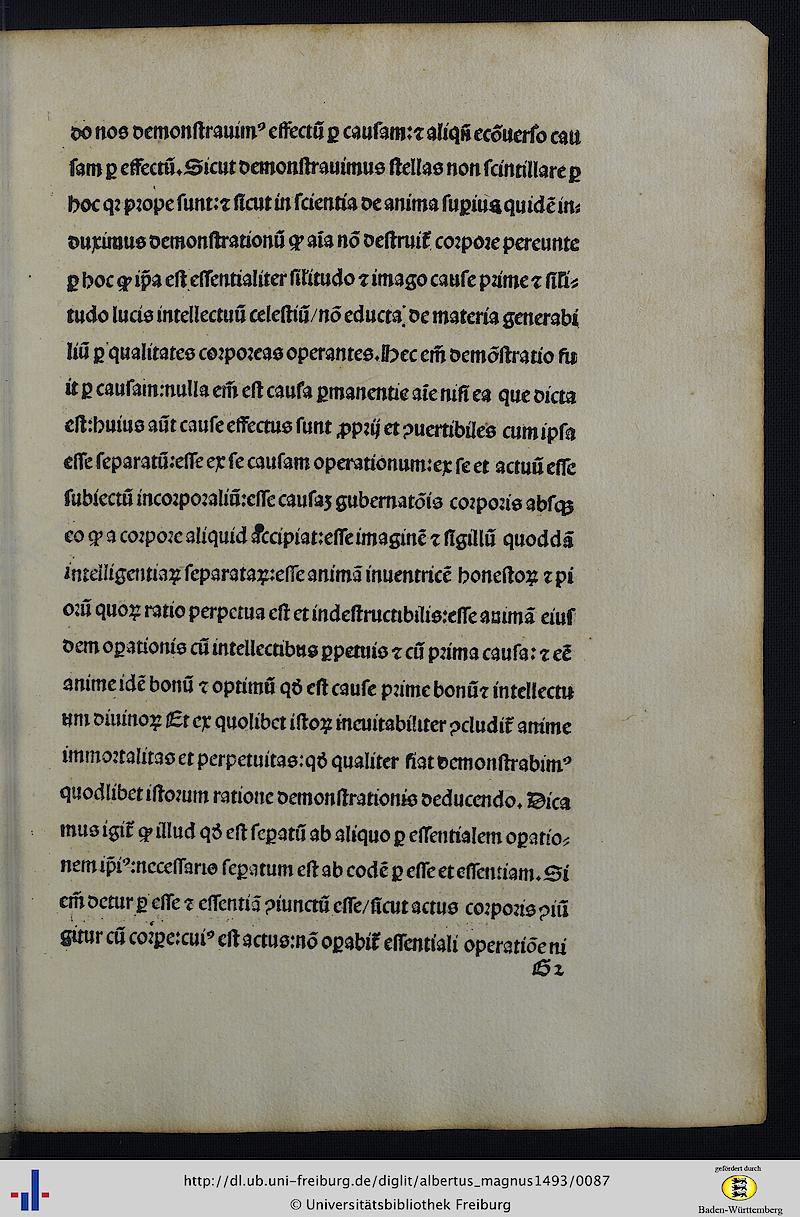 do nos demonſtrauimꝰ effectū ꝑ cauſam:⁊ aliqn̄ ecōuerſo cau
ſam ꝑ effectū.Sicut demonſtrauimus ſtellas non ſcintillare ꝑ
hoc qꝛ prope ſunt:⁊ ſicut in ſcientia de anima ſuꝑius quidē in⸗
duximus demonſtrationū ꝙ aīa nō deſtruit᷑ corpore pereunte
ꝑ hoc ꝙ ip̄a eſt eſſentialiter ſil̄itudo ⁊ imago cauſe prime ⁊ ſil̄i⸗
tudo lucis intellectuū celeſtiū/nō educta: de materia generabi
liū ꝑ qualitates corporeas operantes.Hec em̄ demōſtratio fu
it ꝑ cauſam:nulla em̄ eſt cauſa ꝑmanentie aīe niſi ea que dicta
eſt:huius aūt cauſe effectus ſunt ꝓprij et ꝯuertibiles cum ipſa
eſſe ſeparatū:eſſe ex ſe cauſam operationum:ex ſe et actuū eſſe
ſubiectū incorporaliū:eſſe cauſaꝫ gubernatōis corporis abſqꝫ
eo ꝙ a corpore aliquid accipiat:eſſe imaginē ⁊ ſigillū quoddā
intelligentiaꝝ ſeparataꝝ:eſſe animā inuentricē honeſtoꝝ ⁊ pi
orū quoꝝ ratio perpetua eſt et indeſtructibilis:eſſe animā eiuſ
dem oꝑationis cū intellectibus ꝑpetuis ⁊ cū prima cauſa: ⁊ eē
anime idē bonū ⁊ optimū qd̄ eſt cauſe prime bonū⁊ intellectu
um diuinoꝝ Et ex quolibet iſtoꝝ ineuitabiliter ꝯcludit᷑ anime
immortalitas et perpetuitas:qd̄ qualiter fiat demonſtrabimꝰ
quodlibet iſtorum ratione demonſtrationis deducendo. Dica
mus igit᷑ ꝙ illud qd̄ eſt ſeꝑatū ab aliquo ꝑ eſſentialem oꝑatio⸗
nem ip̄iꝰ:neceſſario ſeꝑatum eſt ab eodē ꝑ eſſe et eſſentiam.Si
em̄ detur ꝑ eſſe ⁊ eſſentiā ꝯiunctū eſſe/ſicut actus corporis ꝯiū
gitur cū corꝑe:cuiꝰ eſt actus:nō oꝑabit᷑ eſſentiali operatiōe ni
G2
http://dl.ub.uni-freiburg.de/diglit/albertus_magnus1493/0087
© Universitätsbibliothek Freiburg
gefördert durch
Baden-Württemberg